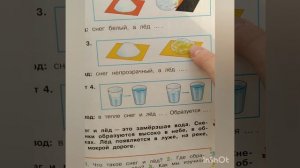 : снег белый, а лёд ....
3.
од: снег непрозрачный, а лёд ....
т 4.
од: в тепле снег и лёд .... Образуется
г и лёд — это замёрзшая вода. Сне-
образуются высоко в небе, в об-
Лёд появляется в луже, на реке,
мокрой дороге.
1. Что такое снег и лёд? 2. Где образ
InShOt